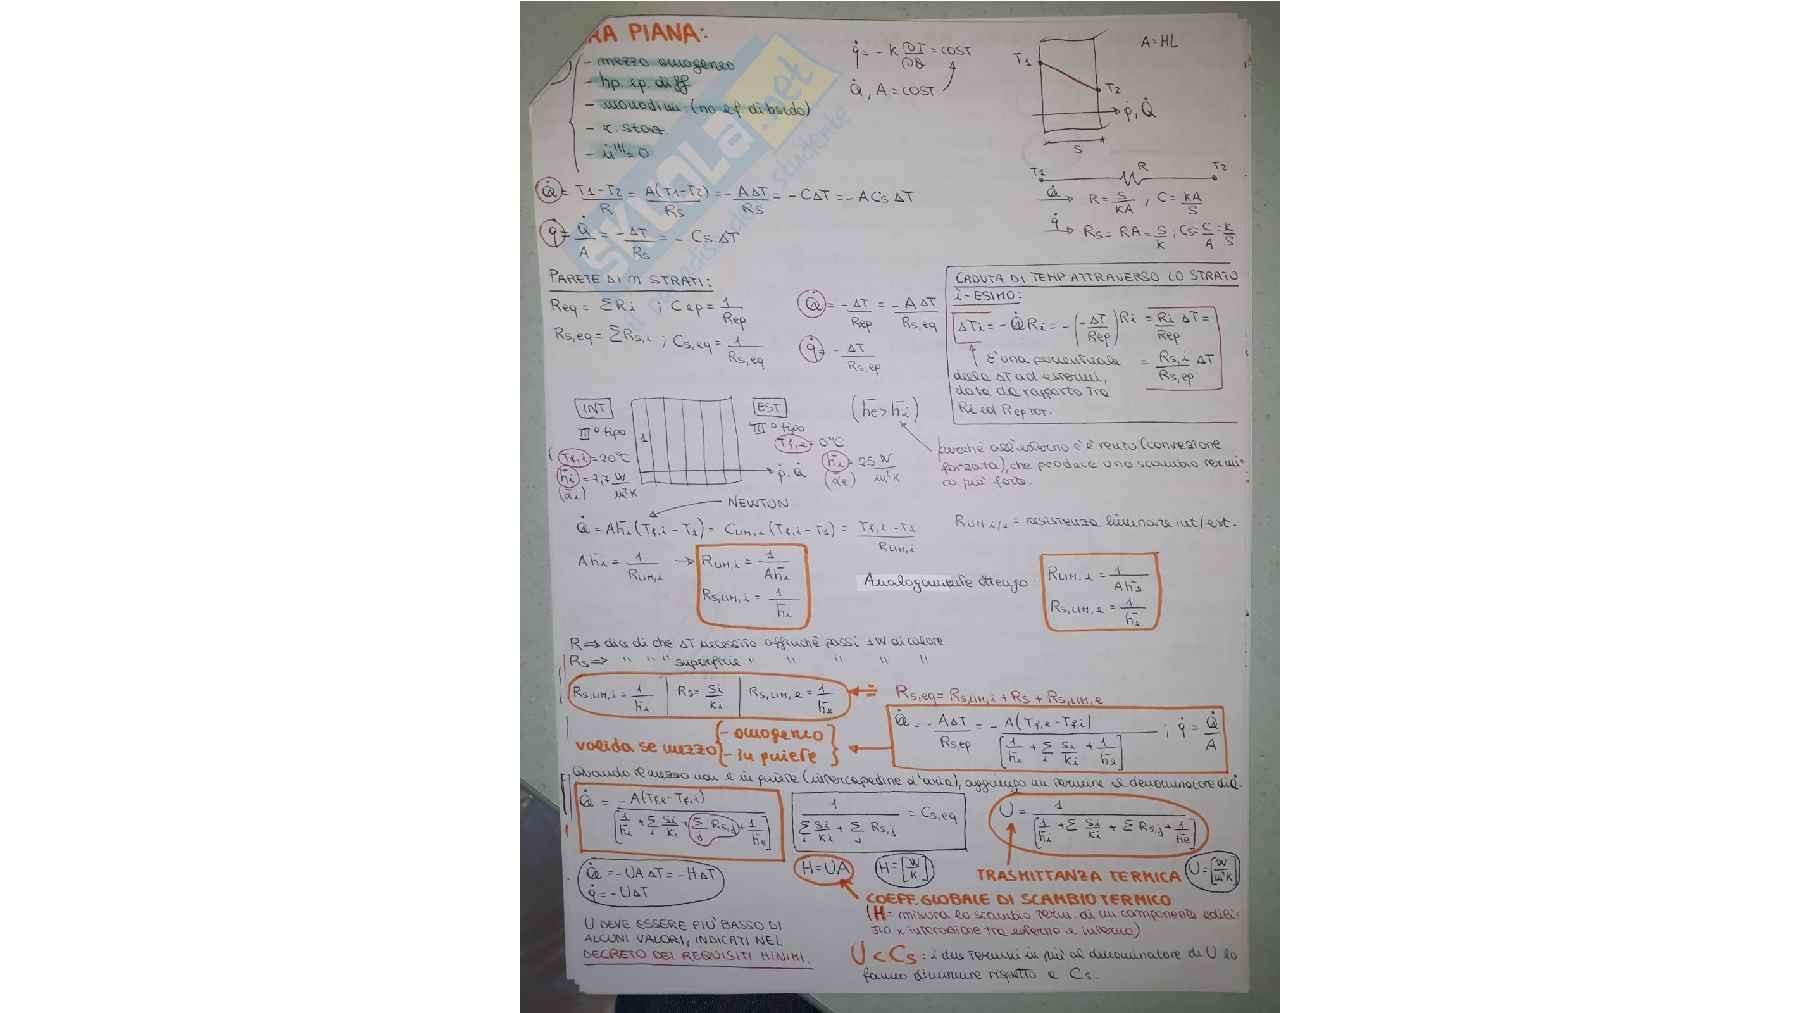 RA PIANA:
- mezzo omogeneo
- hp. ep. diff
- monodim. (no eff. di bordo)
- r. staz.
- u̇''' = 0
q̇ = - K ∂T/∂s = COST
Q̇, A = COST
A = HL
T1
T2
q̇, Q̇
S
Q̇ = (T1-T2)/R = A(T1-T2)/Rs = - AΔT/Rs = - CΔT = - ACs ΔT
q̇ = Q̇/A = - ΔT/Rs = - Cs ΔT
T1 R T2
Q̇ → R = S/KA , C = KA/S
q̇ → Rs = RA = S/K , Cs = C/A = K/S
PARETE DI M STRATI:
Req = ΣRi ; Ceq = 1/Req
Rs,eq = ΣRs,i ; Cs,eq = 1/Rs,eq
Q̇ = - ΔT/Req = - AΔT/Rs,eq
q̇ = - ΔT/Rs,eq
CADUTA DI TEMP ATTRAVERSO LO STRATO
i-ESIMO:
ΔTi = - Q̇ Ri = - (- ΔT/Req) Ri = Ri/Req ΔT =
= Rs,i/Rs,eq ΔT
È una percentuale
della ΔT ad estremi,
data da rapporto tra
Ri ed Req tot.
INT
III° tipo
Tf,i = 20°C
h̄i = 7,7 W/m²K
(αi)
1
EST
III° tipo
Tf,e = 0°C
h̄e = 25 W/m²K
(αe)
q̇, Q̇
(h̄e > h̄i)
perché all'esterno c'è vento (convezione
forzata), che produce uno scambio termi-
co più forte.
NEWTON
Q̇ = Ah̄i (Tf,i - T1) = CLIM,i (Tf,i - T1) = (Tf,i - T1)/RLIM,i
RLIM i/e = resistenza liminare int/est.
Ah̄i = 1/RLIM,i → RLIM,i = 1/Ah̄i
Rs,LIM,i = 1/h̄i
Analogamente ottengo
RLIM,e = 1/Ah̄e
Rs,LIM,e = 1/h̄e
R ⇒ dice di che ΔT necessito affinché passi 1W di calore
Rs ⇒ " " " superficie " " " " "
Rs,LIM,i = 1/h̄i | Rs = Si/Ki | Rs,LIM,e = 1/h̄e
Rs,eq = Rs,LIM,i + Rs + Rs,LIM,e
Q̇ = - AΔT/Rs,eq = - A(Tf,e - Tf,i)/[1/h̄i + Σi Si/Ki + 1/h̄e] ; q̇ = Q̇/A
valida se mezzo
- omogeneo
- in quiete
Quando il mezzo non è in quiete (intercapedine d'aria), aggiungo un termine al denominatore di Q̇.
Q̇ = - A(Tf,e - Tf,i)/[1/h̄i + Σi Si/Ki + Σj Rs,j + 1/h̄e]
1/(Σi Si/Ki + Σj Rs,j) = Cs,eq
U = 1/[1/h̄i + Σ Si/Ki + Σ Rs,j + 1/h̄e]
Q̇ = - UA ΔT = - HΔT
q̇ = - UΔT
H = UA
H = [W/K]
TRASMITTANZA TERMICA
U = [W/m²K]
COEFF. GLOBALE DI SCAMBIO TERMICO
(H = misura lo scambio term. di un componente edili-
zio x interazione tra esterno e interno)
U DEVE ESSERE PIU' BASSO DI
ALCUNI VALORI, INDICATI NEL
DECRETO DEI REQUISITI MINIMI.
U < Cs : i due termini in più al denominatore di U lo
fanno diminuire rispetto a Cs.
SKUOLA.net